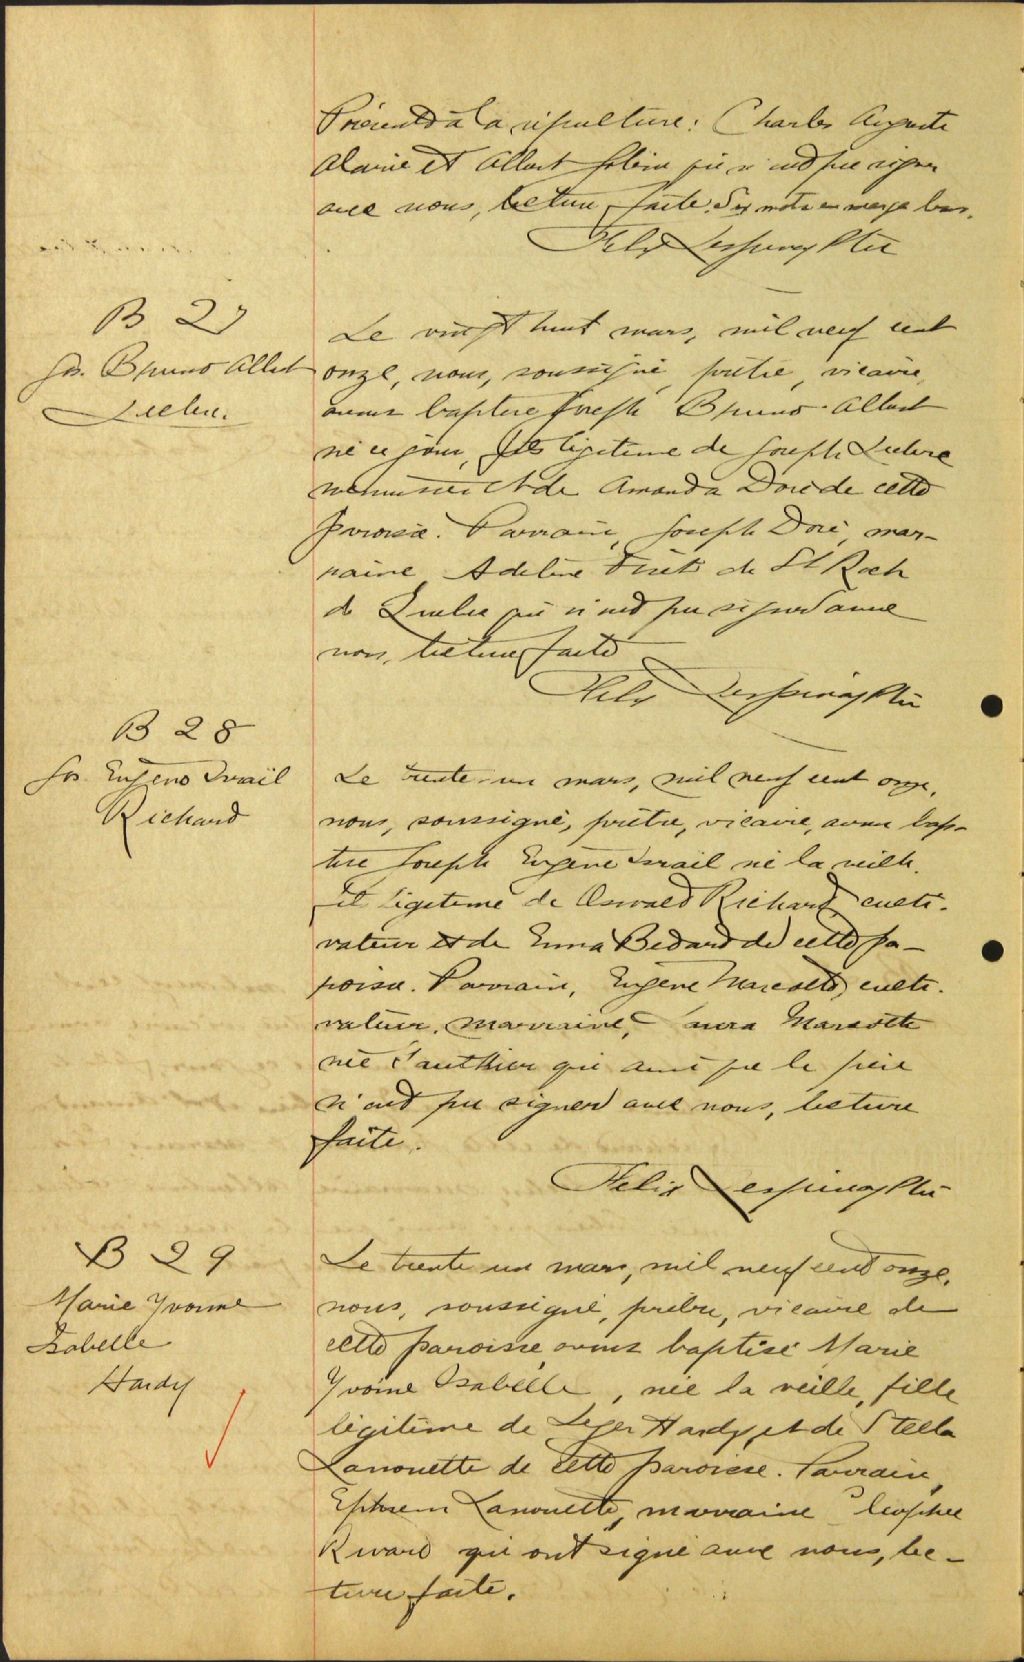 Présents à la sépulture: Charles Auguste
Alarie et Albert qui n'ont pu signer
avec nous, lecture faite. Six mots en marge bons.
Felix Lespinay Ptre
B 27
Jos. Bruno Albert
Leclerc.
Le vingt huit mars, mil neuf cent
onze, nous, soussigné, prêtre, vicaire,
avons baptisé Joseph Bruno Albert
né ce jour, fils légitime de Joseph Leclerc
menuisier et de Amanda Doré de cette
paroisse. Parrain, Joseph Doré, mar-
raine Adeline de St Roch
de Quebec qui n'ont pu signer avec
nous, lecture faite
Felix Lespinay Ptre
B 28
Jos. Eugène Israël
Richard
Le trente-un mars, mil neuf cent onze,
nous, soussigné, prêtre, vicaire, avons bap-
tisé Joseph Eugène Israël né la veille,
fil légitime de Oswald Richard, culti-
vateur et de Emma Bedard de cette pa-
roisse. Parrain, Eugène Marcotte, culti-
vateur, marraine, Marcotte
née Gauthier qui ainsi que le père
n'ont pu signer avec nous, lecture
faite.
Felix Lespinay Ptre
B 29
Marie Yvonne
Isabelle
Hardy
Le trente un mars, mil neuf cent onze,
nous, soussigné, prêtre, vicaire de
cette paroisse avons baptisé Marie
Yvonne Isabelle, née la veille, fille
légitime de Leger Hardy, et de Stella
Lanouette de cette paroisse. Parrain,
Ephrem Lanouette, marraine Cléophée
Rivard qui ont signé avec nous, lec-
ture faite.